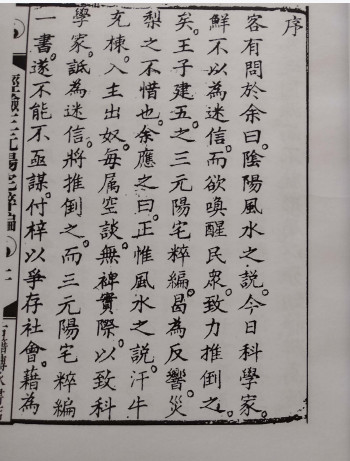 序
客有問於余曰。陰陽風水之說。今日科學家。
鮮不以為迷信。而欲喚醒民眾。致力推倒之
矣。王子建五之三元陽宅粹編。曷為反響災
梨之不惜也。余應之曰。正惟風水之說。汗牛
充棟。入主出奴。每属空談。無裨實際。以致科
學家。詆為迷信。將推倒之。而三元陽宅粹編
一書。遂不能不亟謀。付梓以爭存社會。藉為